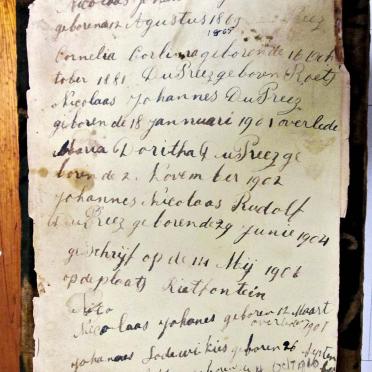 Nicolaas
geboren 12 Agustus 1869 Preez
1868
Cornelia Carlina geborende 16 Och
tober 1881 Du Preez geboren Roets
Nicolaas Johannes Du Preez
geboren de 18 jannuari 1901 overlede
Maria Doritha Du Preez ge
boren de 2 November 1902
Johannes Nicolaas Rudolf
du Preez geborende 29 Junie 1904
geschrijf op de 14 Mij 1906
op de plaats Rietfontein
Nicolaas Johanes geboren 12 Maart
overleden 1907
Johannes Lodewikies geboren 26 Septem